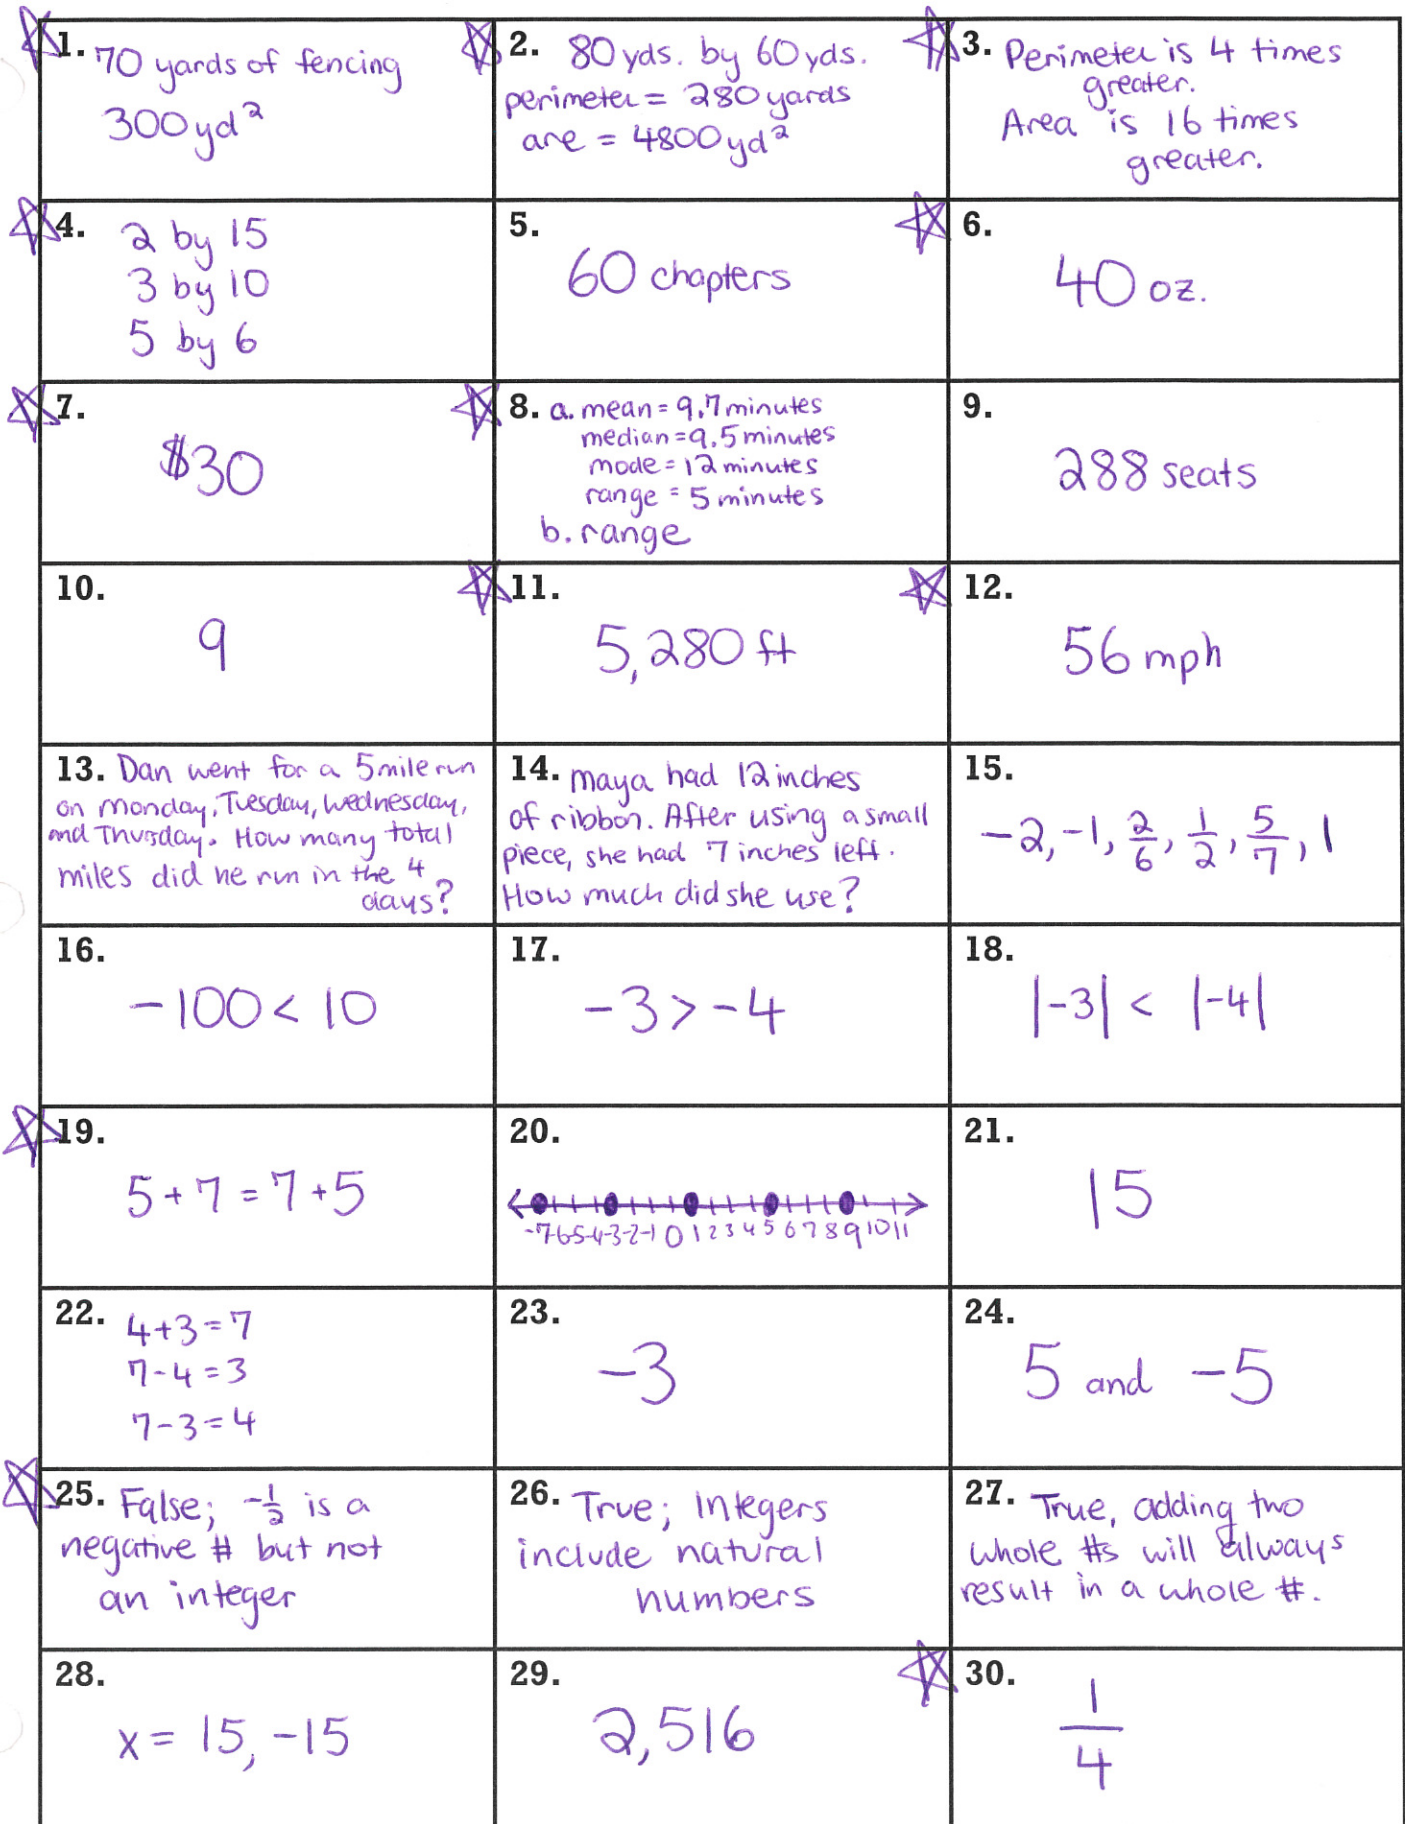 1. 70 yards of fencing
300 yd²
2. 80 yds. by 60 yds.
perimeter = 280 yards
are = 4800 yd²
3. Perimeter is 4 times
greater.
Area is 16 times
greater.
4. 2 by 15
3 by 10
5 by 6
5.
60 chapters
6.
40 oz.
7.
$30
8. a. mean = 9.7 minutes
median = 9.5 minutes
mode = 12 minutes
range = 5 minutes
b. range
9.
288 seats
10.
9
11.
5,280 ft
12.
56 mph
13. Dan went for a 5 mile run
on Monday, Tuesday, Wednesday,
and Thursday. How many total
miles did he run in the 4
days?
14. Maya had 12 inches
of ribbon. After using a small
piece, she had 7 inches left.
How much did she use?
15.
-2, -1, 2/6, 1/2, 5/7, 1
16.
-100 < 10
17.
-3 > -4
18.
|-3| < |-4|
19.
5 + 7 = 7 + 5
20.
-7 -6 -5 -4 -3 -2 -1 0 1 2 3 4 5 6 7 8 9 10 11
21.
15
22. 4 + 3 = 7
7 - 4 = 3
7 - 3 = 4
23.
-3
24.
5 and -5
25. False; -1/2 is a
negative # but not
an integer
26. True; Integers
include natural
numbers
27. True, adding two
whole #s will always
result in a whole #.
28.
x = 15, -15
29.
2,516
30.
1/4